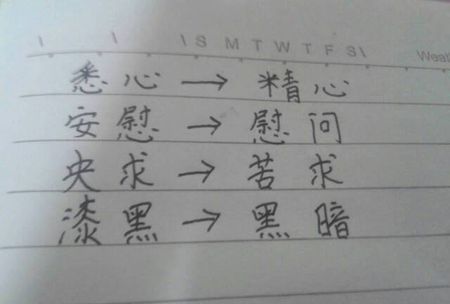 I I I S M T W T F S I Weat
悉心→精心
安慰→慰问
央求→苦求
漆黑→黑暗